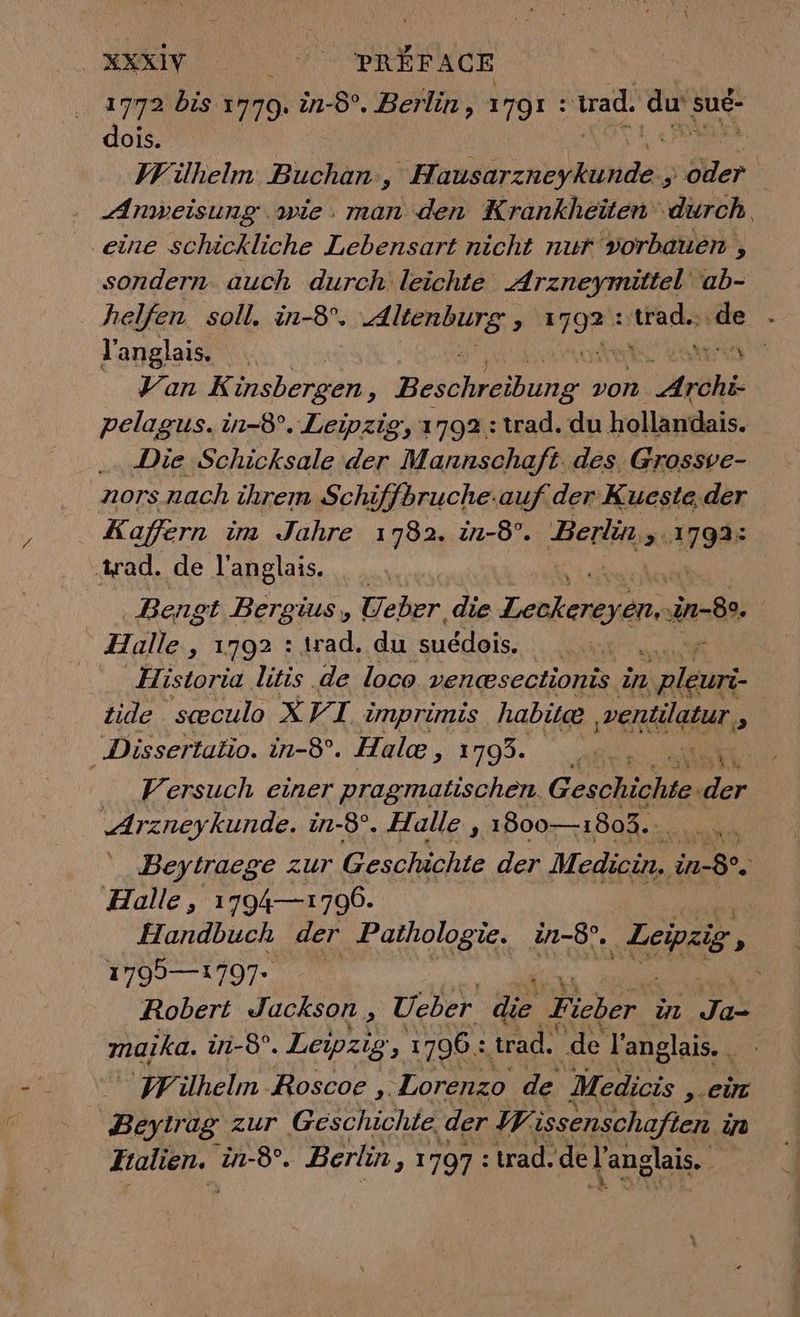 XXXIV PRÉFACE
1772 bis 1779. in-8°. Berlin, 1791 : trad. du sué-
dois.
Wilhelm Buchan, Hausarzneykunde, oder
Anweisung wie man den Krankheiten durch
eine schickliche Lebensart nicht nur vorbauen,
sondern auch durch leichte Arzneymittel ab-
helfen soll. in-8°. Altenburg, 1792 : trad. de
l'anglais.
Van Kinsbergen, Beschreibung von Archi-
pelagus. in-8°. Leipzig, 1792 : trad. du hollandais.
Die Schicksale der Mannschaft des Grossve-
nors nach ihrem Schiffbruche auf der Kueste der
Kaffern im Jahre 1782. in-8°. Berlin, 1792:
trad. de l'anglais.
Bengt Bergius, Ueber die Leckereyen, in-8°.
Halle, 1792 : trad. du suédois.
Historia litis de loco venæsectionis in pleuri-
tide sæculo XVI imprimis habitæ ventilatur,
Dissertatio. in-8°. Halæ, 1793.
Versuch einer pragmatischen Geschichte der
Arzneykunde. in-8°. Halle, 1800—1803.
Beytraege zur Geschichte der Medicin. in-8°.
Halle, 1794—1796.
Handbuch der Pathologie. in-8°. Leipzig,
1795—1797.
Robert Jackson, Ueber die Fieber in Ja-
maika. in-8°. Leipzig, 1796 : trad. de l'anglais.
Wilhelm Roscoe, Lorenzo de Medicis, ein
Beytrag zur Geschichte der Wissenschaften in
Italien. in-8°. Berlin, 1797 : trad. de l'anglais.